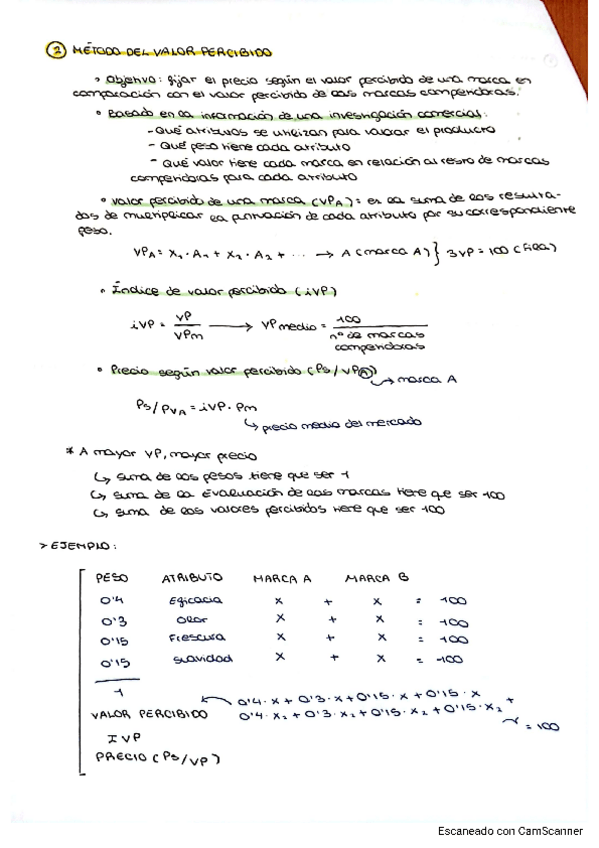 2 MÉTODO DEL VALOR PERCIBIDO
• Objetivo: fijar el precio según el valor percibido de una marca en
comparación con el valor percibido de las marcas competidoras.
• Basado en la información de una investigación comercial:
- Qué atributos se utilizan para valorar el producto
- Qué peso tiene cada atributo
- Qué valor tiene cada marca en relación al resto de marcas
competidoras para cada atributo
• Valor percibido de una marca (VPA): es la suma de los resulta-
dos de multiplicar la puntuación de cada atributo por su correspondiente
peso.
VPA = X1 · A1 + X2 · A2 + ... → A (marca A) } ΣVP = 100 (
• Índice de valor percibido (iVP)
iVP = VP / VPm → VP medio = 100 / nº de marcas
competidoras
• Precio según valor percibido (Ps/VPA)
↳ marca A
Ps/PVA = iVP · Pm
↳ precio medio del mercado
* A mayor VP, mayor precio
↳ suma de los pesos tiene que ser 1
↳ suma de la evaluación de las marcas tiene que ser 100
↳ suma de los valores percibidos tiene que ser 100
> EJEMPLO:
PESO ATRIBUTO MARCA A MARCA B
0'4 Eficacia x + x = 100
0'3 Olor x + x = 100
0'15 Frescura x + x = 100
0'15 Suavidad x + x = 100
1
0'4 · x + 0'3 · x + 0'15 · x + 0'15 · x +
VALOR PERCIBIDO 0'4 · x2 + 0'3 · x2 + 0'15 · x2 + 0'15 · x2
= 100
IVP
PRECIO (Ps/VP)
Escaneado con CamScanner